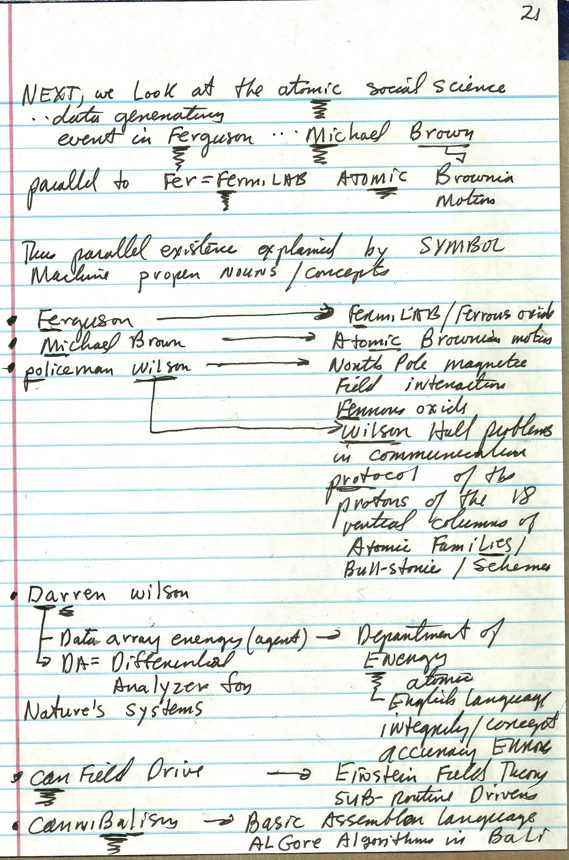 21
NEXT, we Look at the atomic social science
..data generating
event in Ferguson ... Michael Brown
parallel to Fer = FermiLAB Atomic Brownian
Motion
This parallel existence explained by SYMBOL
Machine proper nouns / concepts
• Ferguson → FermiLAB / Ferrous oxide
• Michael Brown → Atomic Brownian motion
• policeman Wilson → North Pole magnetic
Field interaction
Ferrous oxids
Wilson Hall problems
in communication
protocol of the
protons of the 18
vertical columns of
Atomic Families /
Bull-stonie / Schemes
• Darren Wilson
Data array energy (agent) → Department of
Energy
DA = Differential
atomic
Analyzer for
English Language
Nature's systems
integrity / concept
accuracy Errors
• Canfield Drive → Einstein Field Theory
SUB-routine Drivers
• CanniBalism → Basic Assembler Language
AL Gore Algorithms in Bali